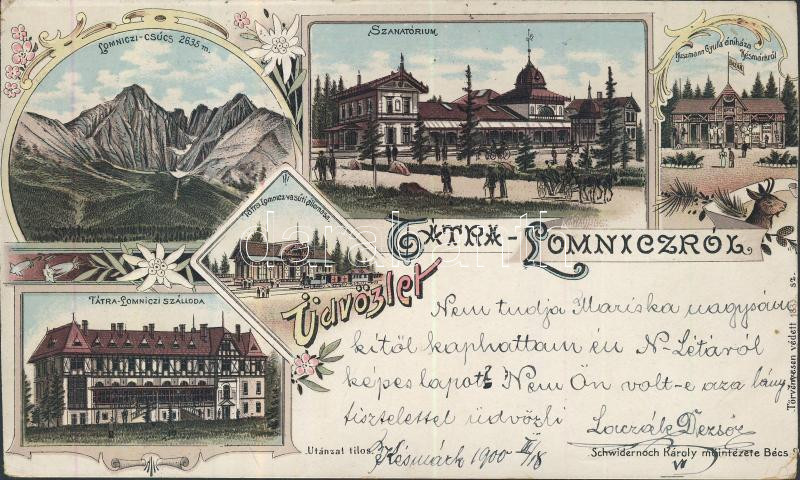 LOMNICZI-CSÚCS 2635 m.
SZANATÓRIUM.
Gyula áruháza
Késmárkról
BAZÁR
Tátra Lomnicz vasúti állomása
TÁTRA-LOMNICZRÓL
Üdvözlet
TÁTRA-LOMNICZI SZÁLLODA
Nem tudja Mariska nagysám
kitől kaphattam én N-Létáról
képes lapot? Nem Ön volt-e az a lány
tisztelettel üdvözli Dezső
Késmárk 1900 18
Utánzat tilos.
Schwidernoch Károly műintézete Bécs
Törvényesen védett sz.
darabanth